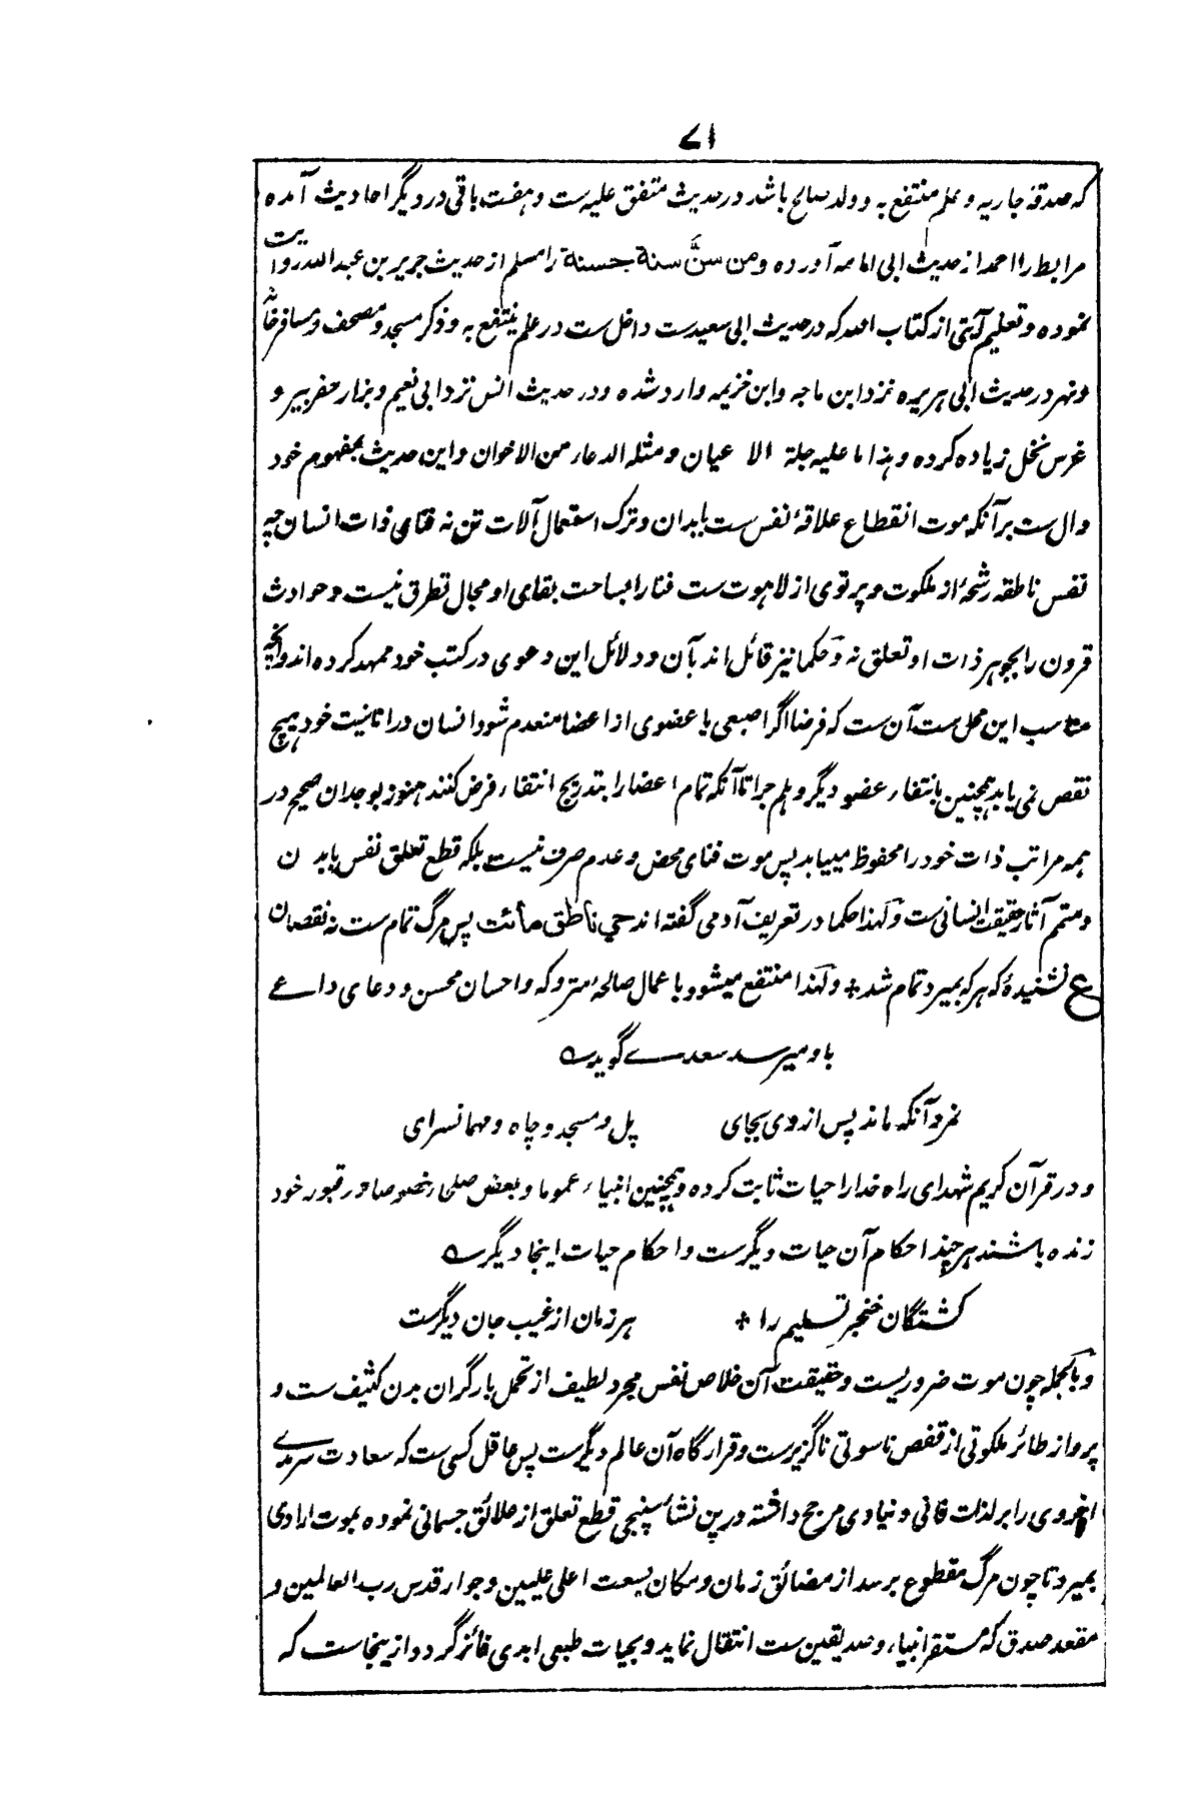 ۷۱
که صدقهٔ جاریه و علم منتفع به و ولد صالح باشد در حدیث متفق علیه ست و هفت باقی در دیگر احادیث آمده
مرابط را احمد از حدیث ابی امامه آورده و من سنَّ سنة حسنة را مسلم از حدیث جریر بن عبد الله روایت
نموده و تعلیم آیتی از کتاب الله که در حدیث ابی سعید ست داخل ست در علم ینتفع به و ذکر مسجد و مصحف و مسافر خانه
و نهر در حدیث ابی هریره نزد ابن ماجه و ابن خزیمه وارد شده و در حدیث انس نزد ابی نعیم و بزار حفر بیر و
غرس نخل زیاده کرده و هذا ما علیه جلة الاعیان و مثله الدعاء من الاخوان و این حدیث بمفهوم خود
دال ست بر آنکه موت انقطاع علاقهٔ نفس ست بابدان و ترک استعمال آلات تن نه فنای ذات انسان چه
نفس ناطقه رشحهٔ از ملکوت و پرتوی از لاهوت ست فنا را بساحت بقای او مجال تطرق نیست و حوادث
قرون را بجوهر ذات او تعلق نه و حکما نیز قائل اند بآن و دلائل این دعوی در کتب خود ممهد کرده اند و آنچه
مناسب این محل ست آن ست که فرضا اگر اصبعی یا عضوی از اعضا منعدم شود انسان در انانیت خود هیچ
نقص نمی یابد همچنین بانتفاء عضو دیگر و هلم جرا تا آنکه تمام اعضا را بتدریج انتفاء فرض کنند هنوز بوجدان صحیح در
همه مراتب ذات خود را محفوظ مییابد پس موت فنای محض و عدم صرف نیست بلکه قطع تعلق نفس بابدن
و متمم آثار حقیقت انسانی ست و لهذا حکما در تعریف آدمی گفته اند حي ناطق مائت پس مرگ تمام ست نه نقصان
ع نشنیدهٔ که هر که بمیرد تمام شد + و لهذا منتفع میشود باعمال صالحهٔ متروکه و احسان محسن و دعای داعے
باو میرسد سعدے گوید ؎
نمرد آنکه ماند پس از وی بجای پل و مسجد و چاه و مهمانسرای
و در قرآن کریم شهدای راه خدا را حیات ثابت کرده و همچنین انبیاء عموما و بعض صلحاء خصوصا در قبور خود
زنده باشند هر چند احکام آن حیات دیگرست و احکام حیات اینجا دیگر ؎
کشتگان خنجر تسلیم را + هر زمان از غیب جان دیگرست
و بالجمله چون موت ضروریست و حقیقت آن خلاص نفس مجرد لطیف از تحمل بار گران بدن کثیف ست و
پرواز طائر ملکوتی از قفص ناسوتی ناگزیرست و قرارگاه آن عالم دیگرست پس عاقل کسی ست که سعادت سرمدے
اخروی را بر لذات فانی دنیاوی مرجح داشته درین نشأ سپنجی قطع تعلق از علائق جسمانی نموده بموت ارادی
بمیرد تا چون مرگ مقطوع برسد از مضائق زمان و مکان بسعت اعلی علیین و جوار قدس رب العالمین و
مقعد صدق که مستقر انبیاء و صدیقین ست انتقال نماید و بحیات طبعی ابدی فائز گردد و ازینجاست که